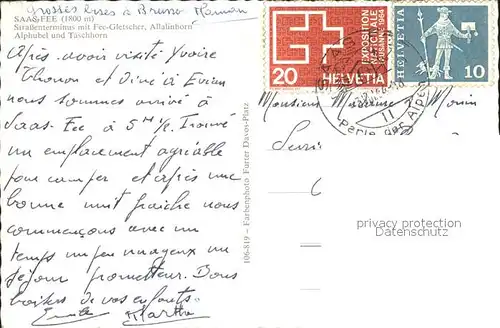 grosses bises à Bruno
SAAS-FEE (1800 m)
Straßenterminus mit Fee-Gletscher, Allalinhorn
Alphubel und Täschhorn
Après avoir visité Yvoire
Thonon et Diné à Evian
nous sommes arrivé à
Saas-Fee à 5 H ½. Trouvé
un emplacement agréable
pour camper et après une
bonne nuit fraiche nous
commençons avec un
temps un peu nuageux un
séjour prometteur. Bons
baisers de vos enfants.
Emile Marthe
106-819 – Farbenphoto Furter Davos-Platz
EXPOSITION
NATIONALE
LAUSANNE 1964
20 HELVETIA
HELVETIA
10
Perle des Alpes
Monsieur Madame
copyright protected
PHILOGRAPHIE